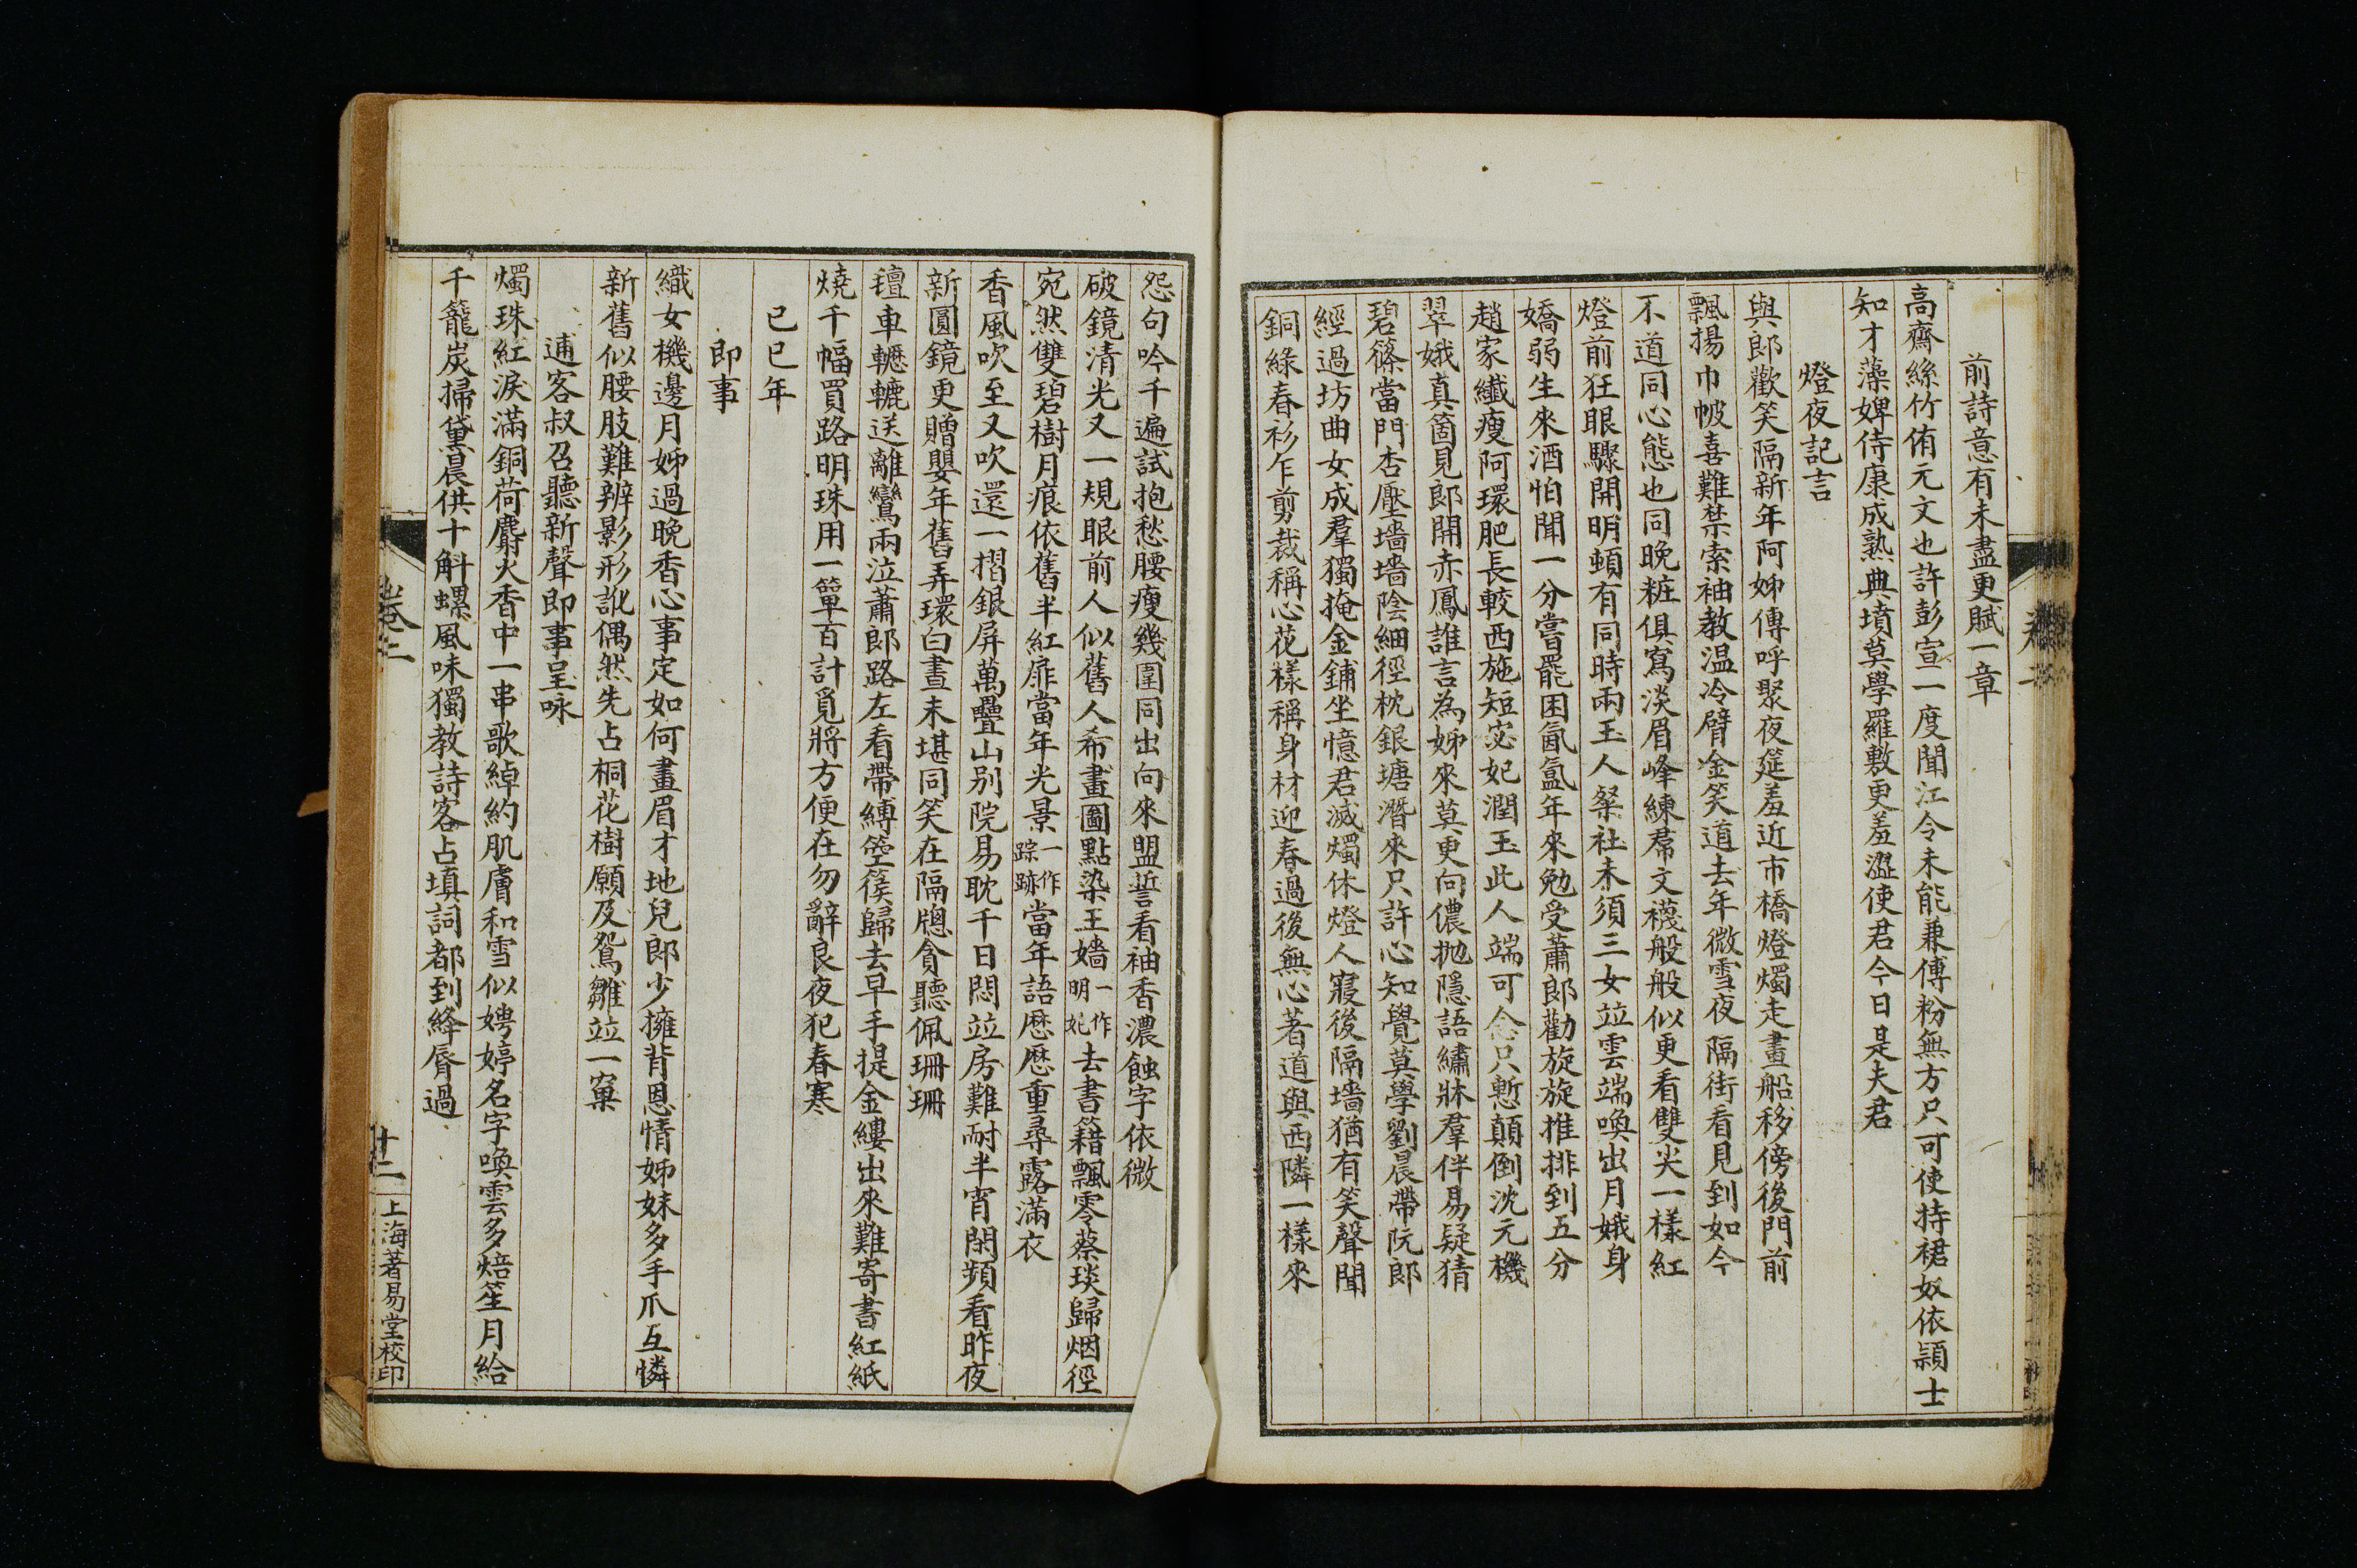 前詩意有未盡更賦一章
高齋絲竹侑元文也許彭宣一度聞江令未能兼傅粉無方只可使持裙奴依頴士
知才藻婢侍康成熟典墳莫學羅敷更羞澀使君今日是夫君
燈夜記言
與郎歡笑隔新年阿姊傳呼聚夜筵羞近市橋燈燭走畫船移傍後門前
飄揚巾帔喜難禁索袖教温冷臂金笑道去年微雪夜隔街看見到如今
不道同心態也同晚粧俱寫淡眉峰練帬文襪般般似更看雙尖一樣紅
燈前狂眼驟開明頓有同時兩玉人粲社未須三女竝雲端喚出月娥身
嬌弱生來酒怕聞一分嘗罷困氤氳年來勉受蕭郎勸旋旋推排到五分
趙家纖瘦阿環肥長較西施短宓妃潤玉此人端可念只慙顛倒沈元機
翠娥真箇見郎開赤鳳誰言為姊來莫更向儂拋隱語繡牀羣伴易疑猜
碧篠當門杏壓墻墻陰細徑枕銀塘潛來只許心知覺莫學劉晨帶阮郎
經過坊曲女成羣獨掩金鋪坐憶君滅燭休燈人寢後隔墻猶有笑聲聞
銅綠春衫乍剪裁稱心花樣稱身材迎春過後無心著道與西隣一樣來
怨句吟千遍試抱愁腰瘦幾圍同出向來盟誓看袖香濃蝕字依微
破鏡清光又一規眼前人似舊人希畫圖點染王嬙一作明妃去書籍飄零蔡琰歸烟徑
宛然雙碧樹月痕依舊半紅扉當年光景一作踪跡當年語歷歷重尋露滿衣
香風吹至又吹還一摺銀屏萬疊山別院易耽千日悶竝房難耐半宵閑頻看昨夜
新圓鏡更贈嬰年舊弄環白晝未堪同笑在隔牕貪聽佩珊珊
氊車轣轆送離鸞兩泣蕭郎路左看帶縛箜篌歸去早手提金縷出來難寄書紅紙
燒千幅買路明珠用一簞百計覓將方便在勿辭良夜犯春寒
己巳年
即事
織女機邊月姊過晚香心事定如何畫眉才地兒郎少擁背恩情姊妹多手爪互憐
新舊似腰肢難辨影形訛偶然先占桐花樹願及鴛雛竝一窠
逋客叔召聽新聲即事呈咏
燭珠紅淚滿銅荷麝火香中一串歌綽約肌膚和雪似娉婷名字喚雲多焙笙月給
千籠炭掃黛晨供十斛螺風味獨教詩客占填詞都到絳脣過
卷二
十二
上海著易堂校印